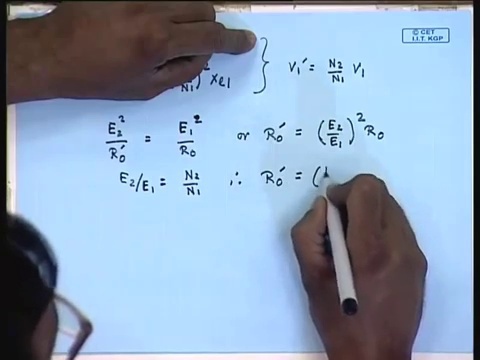 © CET
I.I.T. KGP
N1)² Xe1 } V1′ = N2/N1 V1
E2²/R0′ = E1²/R0 or R0′ = (E2/E1)² R0
E2/E1 = N2/N1 ∴ R0′ = (